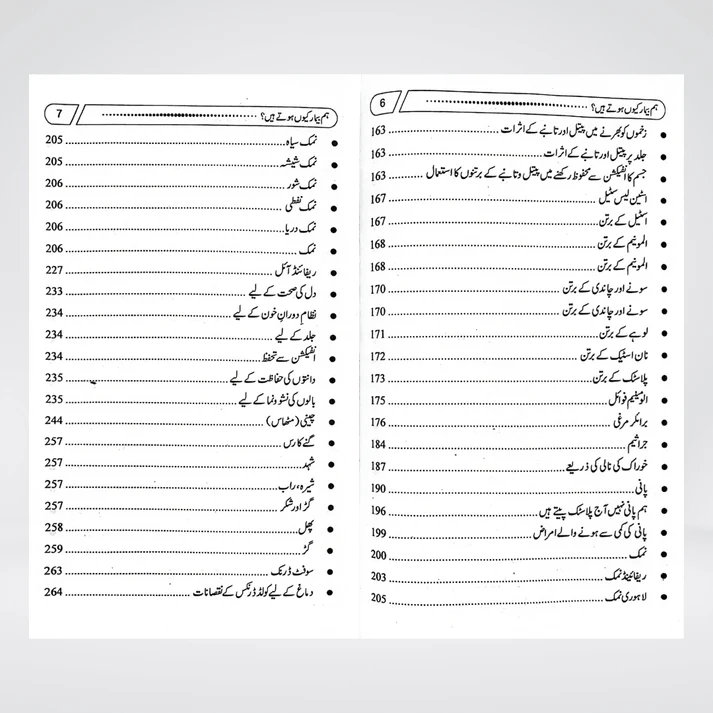 ہم بیمار کیوں ہوتے ہیں؟ 6
زخموں کو بھرنے میں پیتل اور تانبے کے اثرات 163
جلد پر پیتل اور تانبے کے اثرات 163
جسم کا انفیکشن سے محفوظ رکھنے میں پیتل و تانبے کے برتنوں کا استعمال 163
اسٹین لیس سٹیل 167
اسٹیل کے برتن 167
المونیم کے برتن 168
المونیم کے برتن 168
سونے اور چاندی کے برتن 170
سونے اور چاندی کے برتن 170
لوہے کے برتن 171
نان اسٹیک کے برتن 172
پلاسٹک کے برتن 173
الومینیم فوائل 175
برائلر مرغی 176
جراثیم 184
خوراک کی نالی کی ذریعے 187
پانی 190
ہم پانی نہیں آج پلاسٹک پیتے ہیں 196
پانی کی کمی سے ہونے والے امراض 199
نمک 200
ریفائینڈ نمک 203
لاہوری نمک 205
ہم بیمار کیوں ہوتے ہیں؟ 7
نمک سیاہ 205
نمک شیشہ 205
نمک شور 206
نمک نفطی 206
نمک دریا 206
نمک 206
ریفائنڈ آئل 227
دل کی صحت کے لیے 233
نظام دوران خون کے لیے 234
جلد کے لیے 234
انفیکشن سے تحفظ 234
دانتوں کی حفاظت کے لیے 235
بالوں کی نشوونما کے لیے 235
چینی (مٹھاس) 244
گنے کا رس 257
شہد 257
شیرہ، راب 257
گڑ اور شکر 257
پھل 258
گڑ 259
سوفٹ ڈرنک 263
دماغ کے لیے کولڈ ڈرنکس کے نقصانات 264